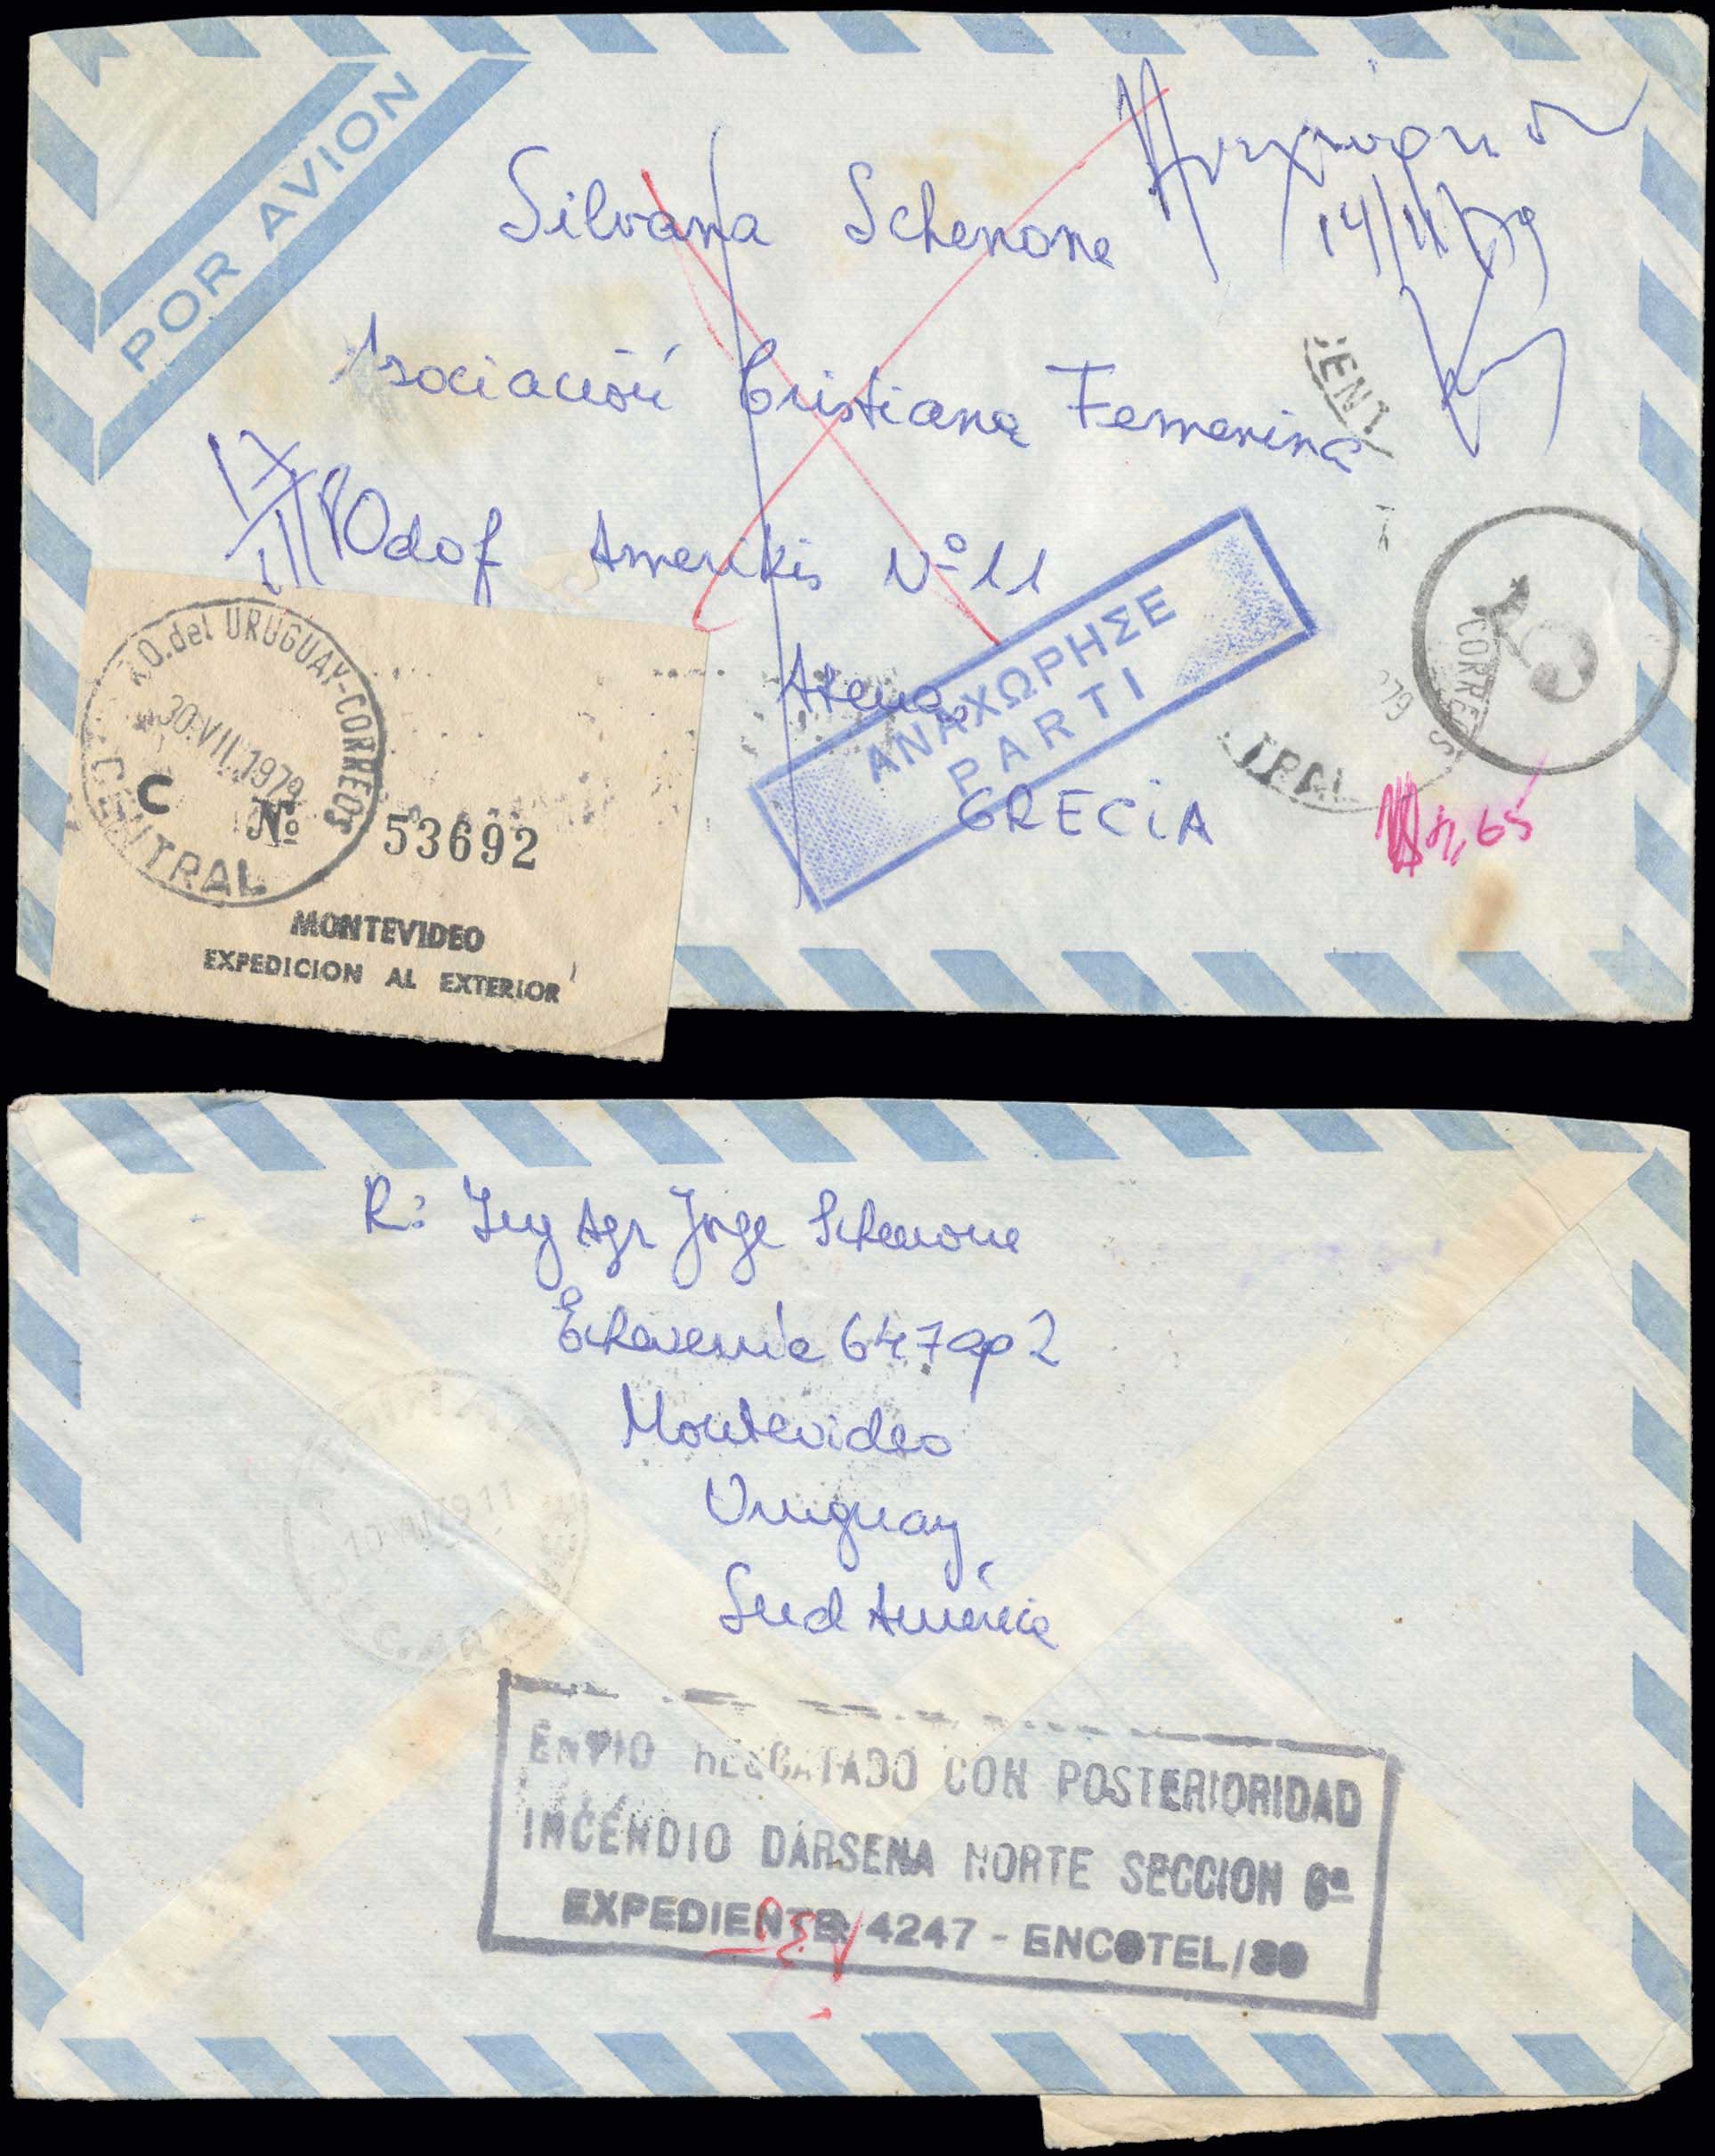 POR AVION
Αναχώρησε
14/11/79
Silvana Schenone
Asociación Cristiana Femenina
Odof Amerikis Nº 11
Atenas
GRECiA
ΑΝΑΧΩΡΗΣΕ
PARTI
CENT
CORREOS
TRAL
979
65
R.O. del URUGUAY-CORREOS
30.VII.1979
CENTRAL
C Nº 53692
MONTEVIDEO
EXPEDICION AL EXTERIOR
R: Ing Agr Jorge Schenone
Echeverria 647 ap 2
Montevideo
Uruguay
Sud América
ENVIO RESCATADO CON POSTERIORIDAD
INCENDIO DÁRSENA NORTE SECCION 6ª
EXPEDIENTE 4247 - ENCOTEL/80